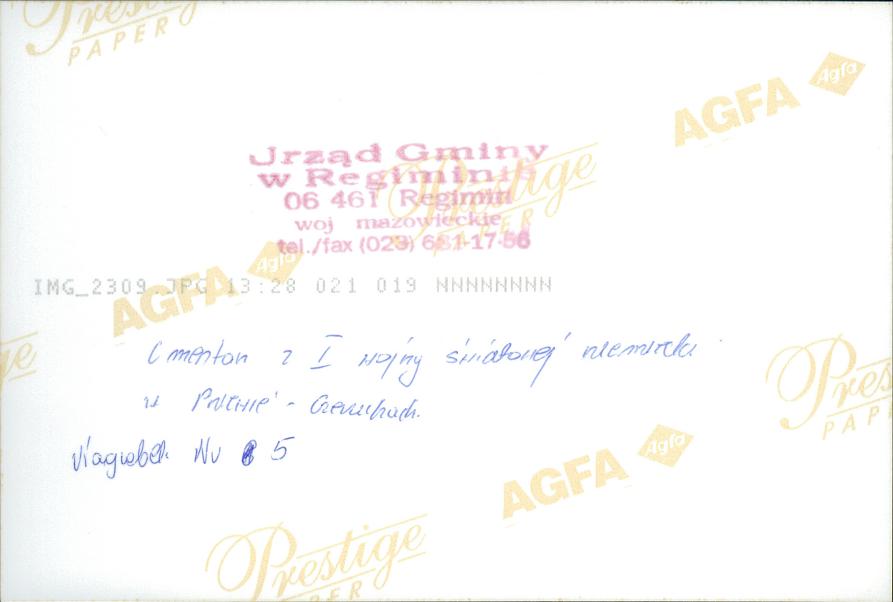 Prestige
PAPER
AGFA Agfa
Urząd Gminy
w Regiminie
06 461 Regimin
woj mazowieckie
tel./fax (023) 681-17-56
Prestige
PAPER
AGFA Agfa
IMG_2309.JPG 13:28 021 019 NNNNNNNN
Cmentarz z I wojny światowej niemiecki
w
Nagrobek Nr 5
Prestige
PAPER
AGFA Agfa
Prestige
PAPER